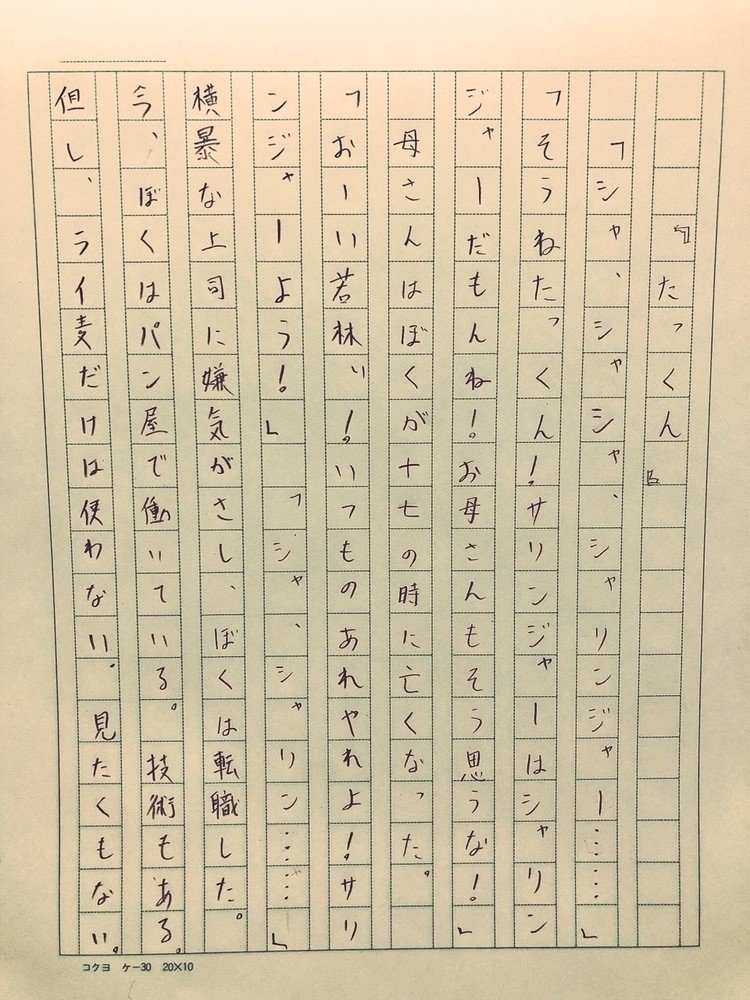 『たっくん』
「シャ、シャシャ、シャリンジャー……」
「そうねたっくん!サリンジャーはシャリン
ジャーだもんね!お母さんもそう思うな!」
母さんはぼくが十七の時に亡くなった。
「おーい若林ぃ!いつものあれやれよ!サリ
ンジャーよう!」 「シャ、シャリン……」
横暴な上司に嫌気がさし、ぼくは転職した。
今、ぼくはパン屋で働いている。技術もある。
但し、ライ麦だけは使わない。見たくもない。
コクヨ ケー30 20×10